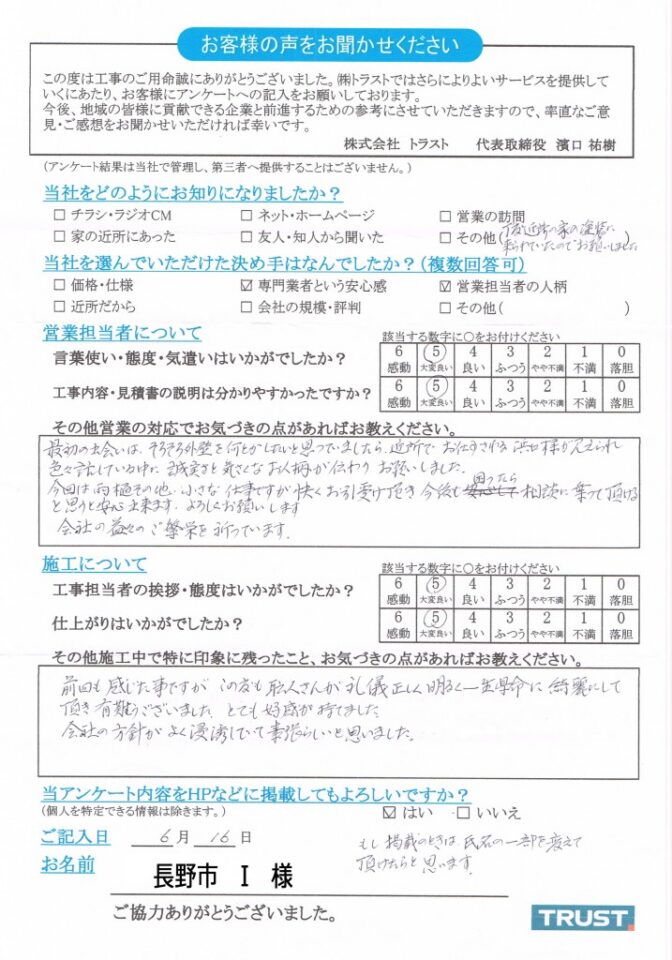 お客様の声をお聞かせください
この度は工事のご用命誠にありがとうございました。㈱トラストではさらによりよいサービスを提供して
いくにあたり、お客様にアンケートへの記入をお願いしております。
今後、地域の皆様に貢献できる企業と前進するための参考にさせていただきますので、率直なご意
見・ご感想をお聞かせいただければ幸いです。
株式会社 トラスト 代表取締役 濱口 祐樹
(アンケート結果は当社で管理し、第三者へ提供することはございません。)
当社をどのようにお知りになりましたか？
□ チラシ・ラジオCM □ ネット・ホームページ □ 営業の訪問
□ 家の近所にあった □ 友人・知人から聞いた □ その他(
近所の家の塗装に
来られていたのでお願いしました
当社を選んでいただけた決め手はなんでしたか？(複数回答可)
□ 価格・仕様 ☑ 専門業者という安心感 ☑ 営業担当者の人柄
□ 近所だから □ 会社の規模・評判 □ その他( )
営業担当者について
該当する数字に○をお付けください
言葉使い・態度・気遣いはいかがでしたか？
6 5 4 3 2 1 0
感動 大変良い 良い ふつう やや不満 不満 落胆
工事内容・見積書の説明は分かりやすかったですか？
6 5 4 3 2 1 0
感動 大変良い 良い ふつう やや不満 不満 落胆
その他営業の対応でお気づきの点があればお教えください。
最初の出会いは、そろそろ外壁を何とかしたいと思っていましたら、近所でお仕事される 様が見えられ
色々話している中に、誠実さと気さくなお人柄が伝わりお願いしました。
今回は雨樋その他、小さな仕事ですが快くお引受け頂き今後も困ったら相談に乗って頂ける
と思うと安心出来ます。よろしくお願いします
会社の益々のご繁栄を祈っています。
施工について
該当する数字に○をお付けください
工事担当者の挨拶・態度はいかがでしたか？
6 5 4 3 2 1 0
感動 大変良い 良い ふつう やや不満 不満 落胆
仕上がりはいかがでしたか？
6 5 4 3 2 1 0
感動 大変良い 良い ふつう やや不満 不満 落胆
その他施工中で特に印象に残ったこと、お気づきの点があればお教えください。
前回も感じた事ですが この度も職人さんが礼儀正しく明るく一生懸命に綺麗にして
頂き有難うございました とても好感が持てました
会社の方針がよく浸透していて素晴らしいと思いました。
当アンケート内容をHPなどに掲載してもよろしいですか？
(個人を特定できる情報は除きます。)
☑ はい □ いいえ
ご記入日 6 月 16 日
もし掲載のときは、氏名の一部を変えて
頂けたらと思います。
お名前
長野市 I 様
ご協力ありがとうございました。
TRUST.